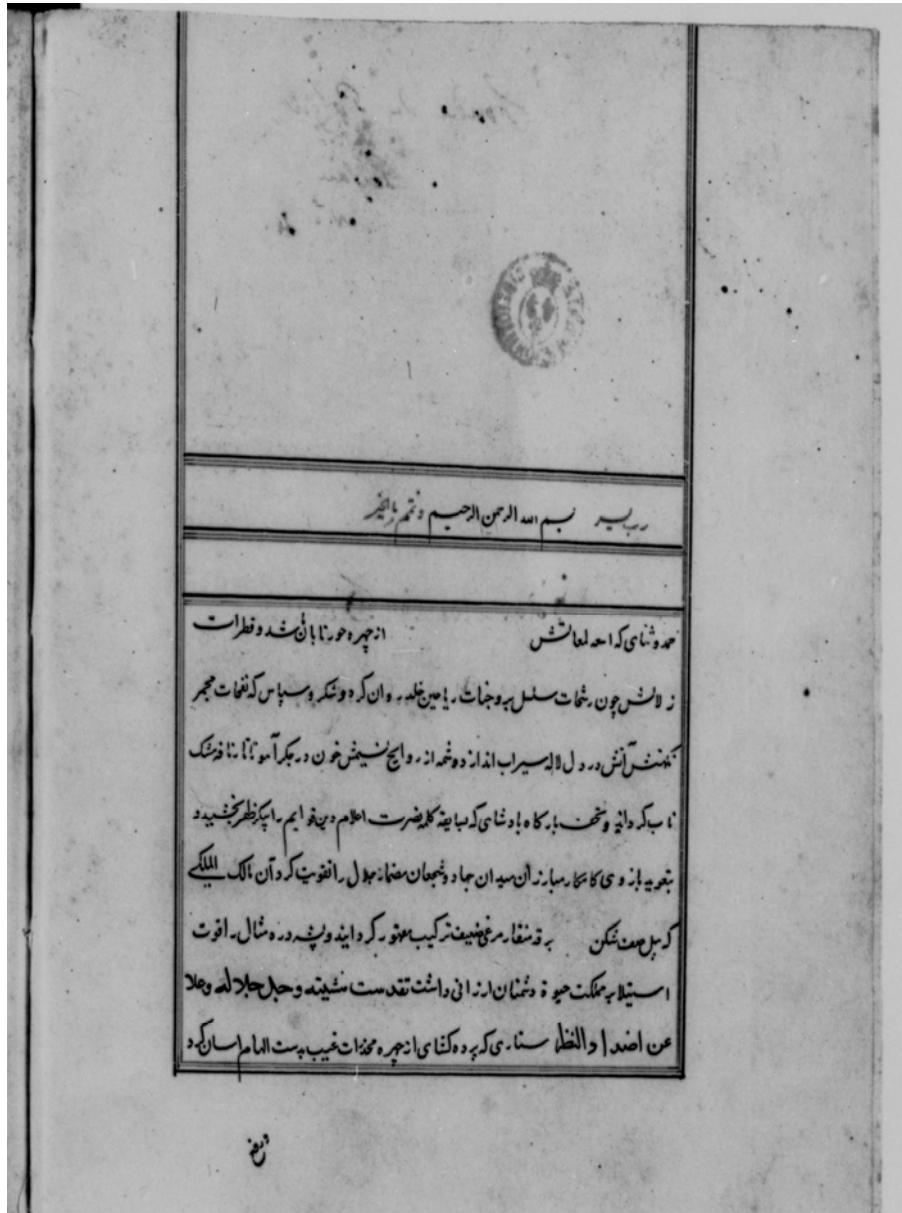 رب یسر بسم الله الرحمن الرحیم و تمم بالخیر
حمد و ثنای که لمعاتش از چهره حور تابان شد و قطرات
زلالش چون رشحات سلسل بر وجنات ریاحین خلد روان کرد و شکر و سپاس که نفحات مجمر
آتش در دل لاله سیراب اندازد و شمه از روایح نسیمش خون در جکر آهو تاتار نافه مشک
ناب کرداند و تحف بارکاه بادشاهی که سابقه کلمه نصرت اعلام دین قوایم را پیکر ظفر بخشید و
بتعویذ بازوی کامکار مبارزان میدان جهاد و شجعان مضمار جلال را تقویت کرد آن مالک الملکی
که پیل صف شکن بر منقار مرغی ضعیف ترکیب مقهور کردانید و پشه ذره مثال را قوت
استیلا بر مملکت حیوة دشمنان ارزانی داشت تقدست مشیته و جل جلاله و علا
عن اضداد والنظار ستاری که پرده کشای از چهره مخدرات غیب بدست الهام اسان کرد